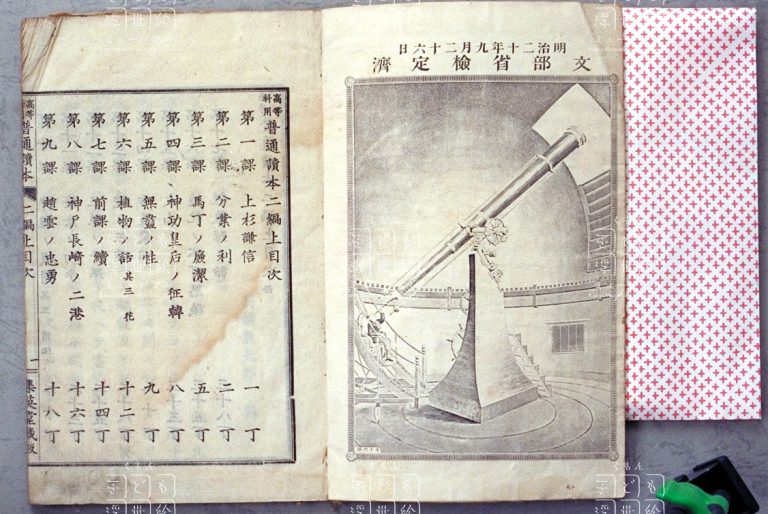 明治二十年九月二十六日
文部省檢定濟
高等科用 普通讀本二編上目次
第一課 上杉謙信 一丁
第二課 分業ノ利 二丁
第三課 馬丁ノ廉潔 五丁
第四課 神功皇后ノ征韓 八丁
第五課 無盡ノ性 九丁
第六課 植物ノ話 其三 花 十二丁
第七課 前課ノ續 十四丁
第八課 神戸長崎ノ二港 十六丁
第九課 趙雲ノ忠勇 十八丁
高等 普通讀本 二編上目次 一 集英堂藏版
くもん
子ども
浮世絵